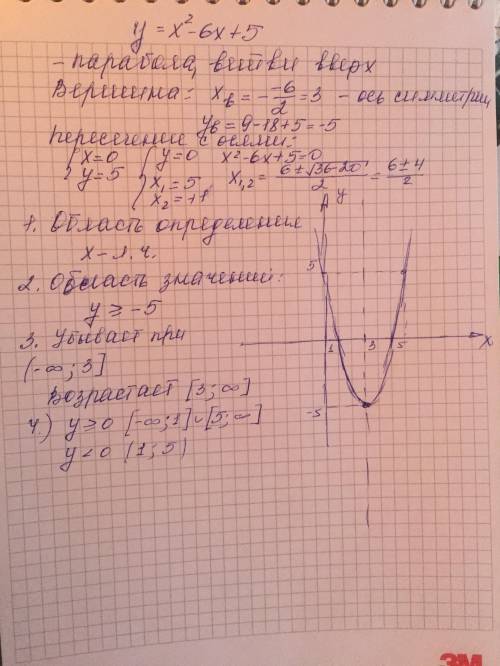 y = x² - 6x + 5
- парабола, ветви вверх
Вершина: x_в = - -6/2 = 3 - ось симметрии
y_в = 9 - 18 + 5 = -5
Пересечение с осями:
{ x = 0 { y = 0 x² - 6x + 5 = 0
{ y = 5 { x₁ = 5, x₁,₂ = (6 ± √36 - 20)/2 = (6 ± 4)/2
x₂ = +1
y
1. Область определения
x - л. ч.
5
2. Область значений:
y ≥ -5
3. Убывает при
1 3 5 x
(-∞; 3]
Возрастает [3; ∞]
-5
4.) y ≥ 0 [-∞; 1] ∪ [5; ∞]
y < 0 (1; 5)
3M